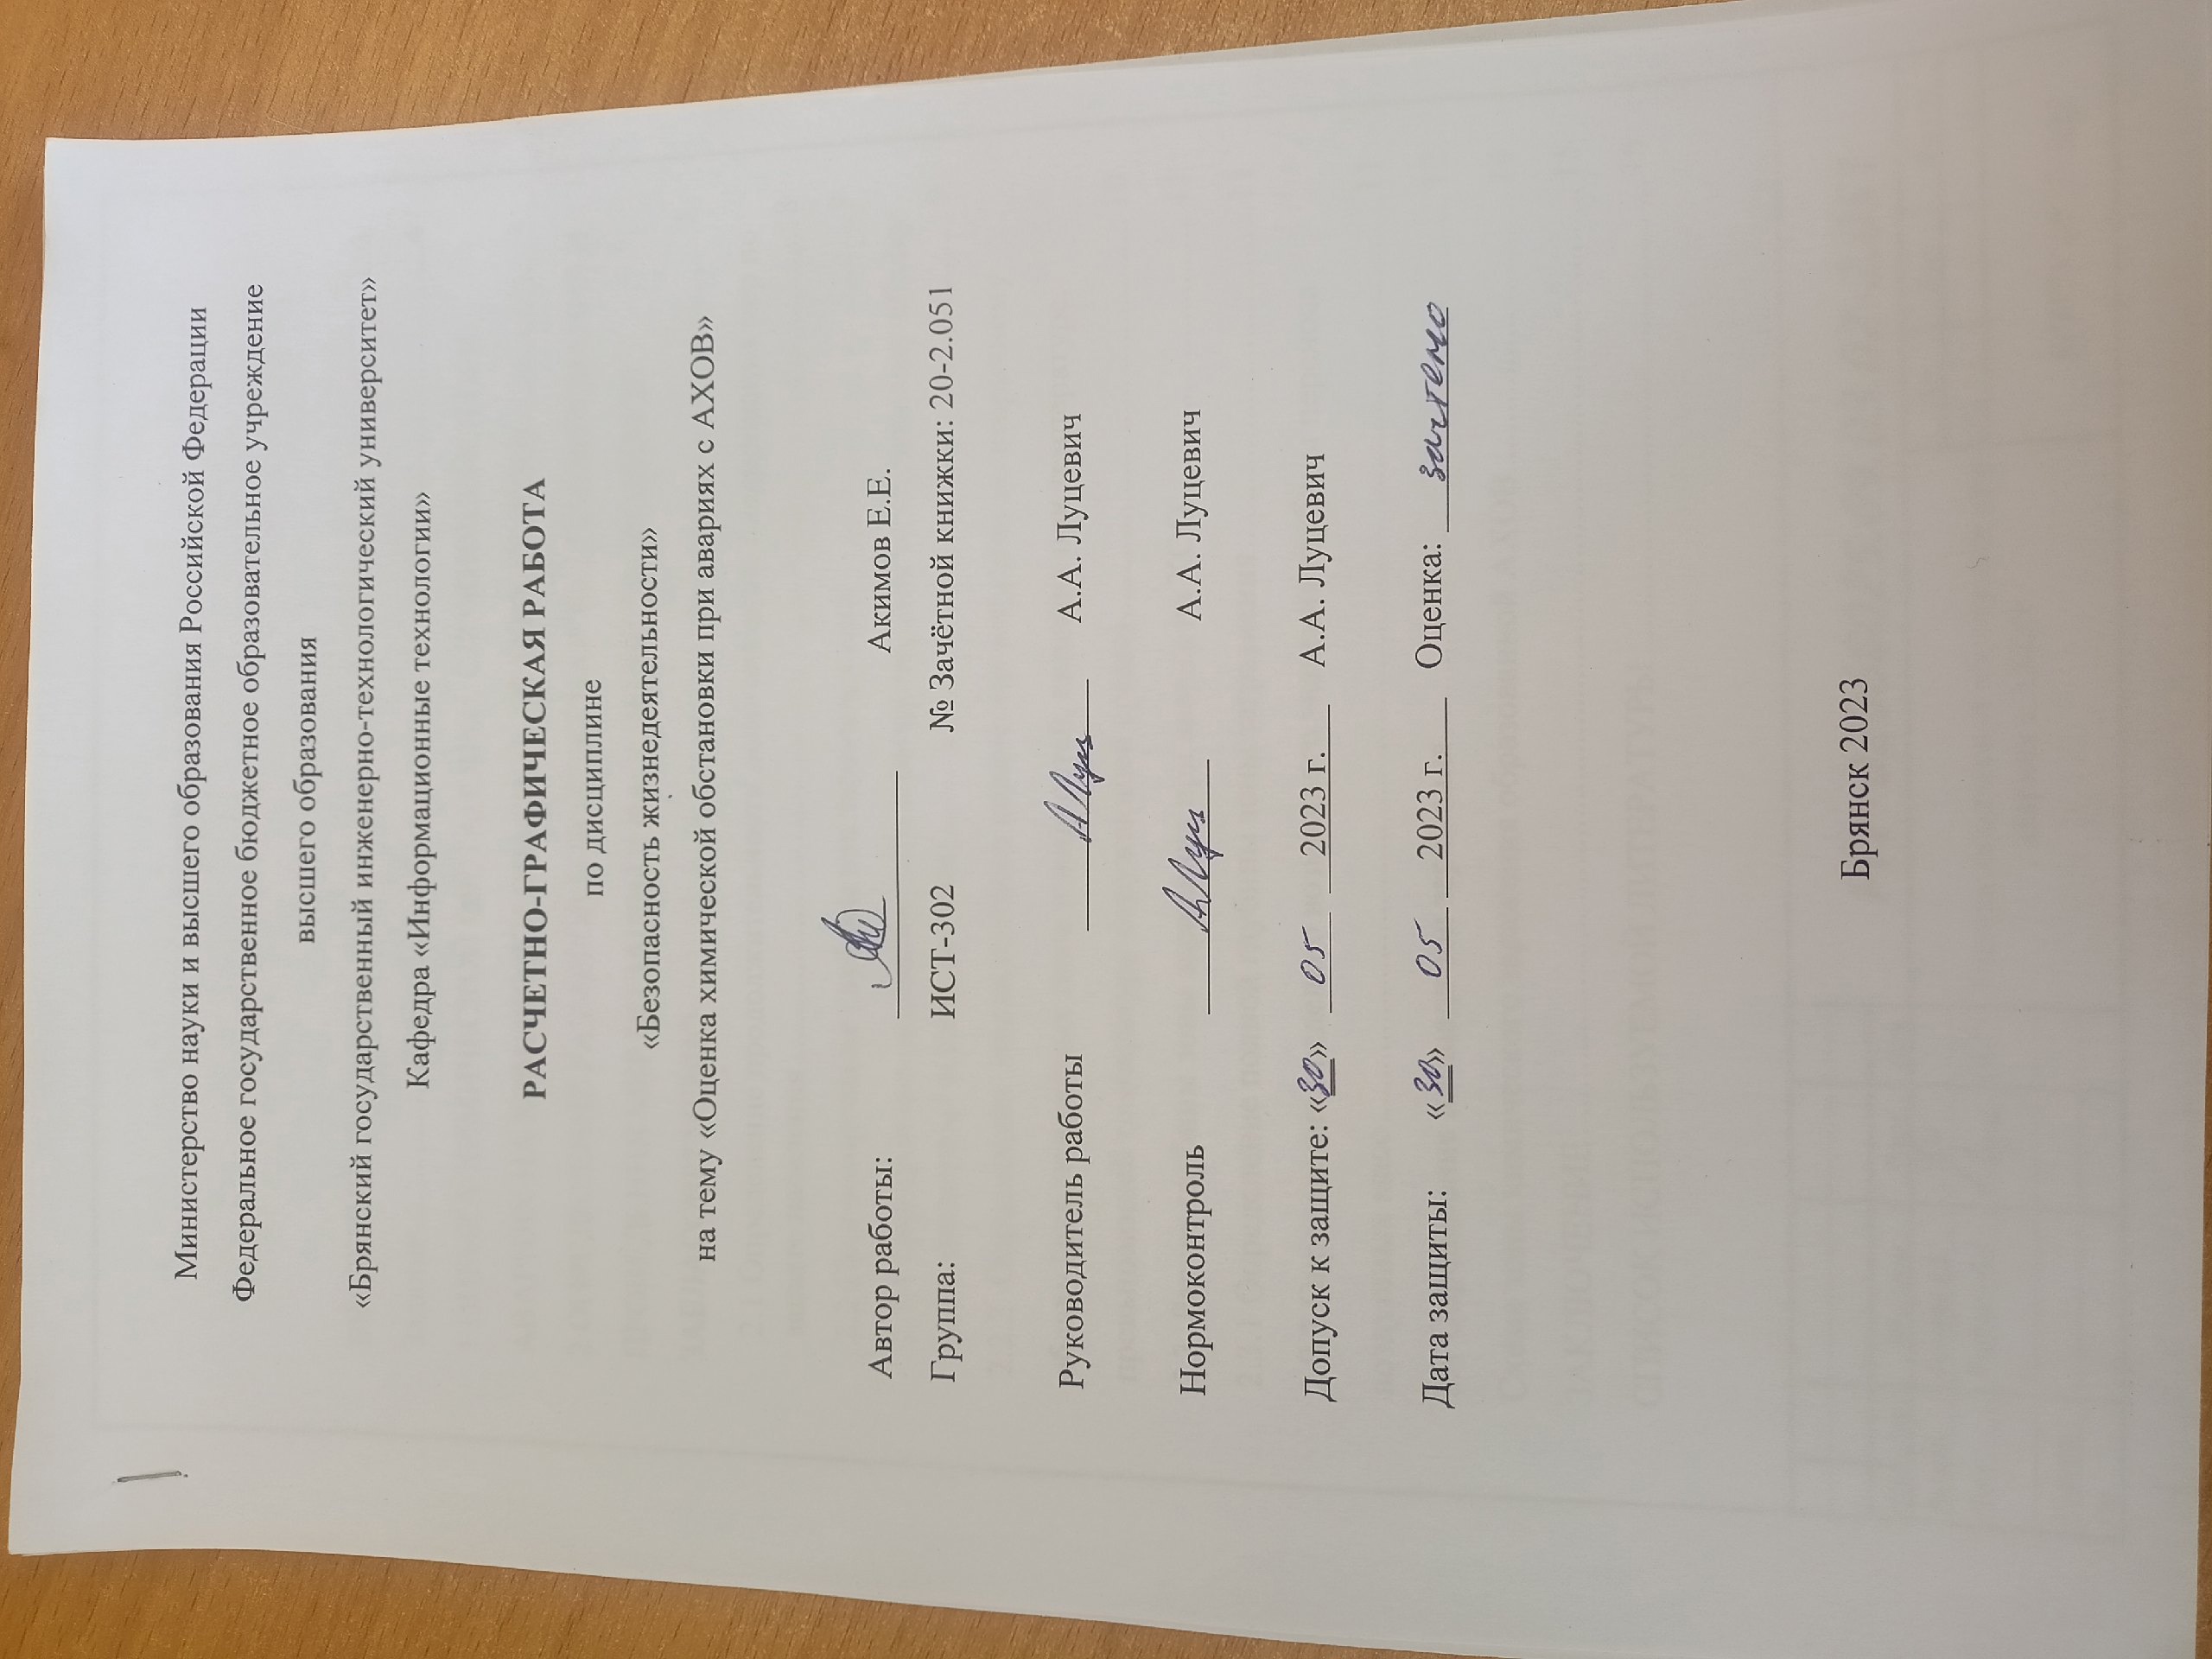 Министерство науки и высшего образования Российской Федерации
Федеральное государственное бюджетное образовательное учреждение
высшего образования
«Брянский государственный инженерно-технологический университет»
Кафедра «Информационные технологии»
РАСЧЕТНО-ГРАФИЧЕСКАЯ РАБОТА
по дисциплине
«Безопасность жизнедеятельности»
на тему «Оценка химической обстановки при авариях с АХОВ»
Автор работы: Акимов Е.Е.
Группа: ИСТ-302 № Зачётной книжки: 20-2.051
Руководитель работы А.А. Луцевич
Нормоконтроль А.А. Луцевич
Допуск к защите: «30» 05 2023 г. А.А. Луцевич
Дата защиты: «30» 05 2023 г. Оценка: зачтено
Брянск 2023